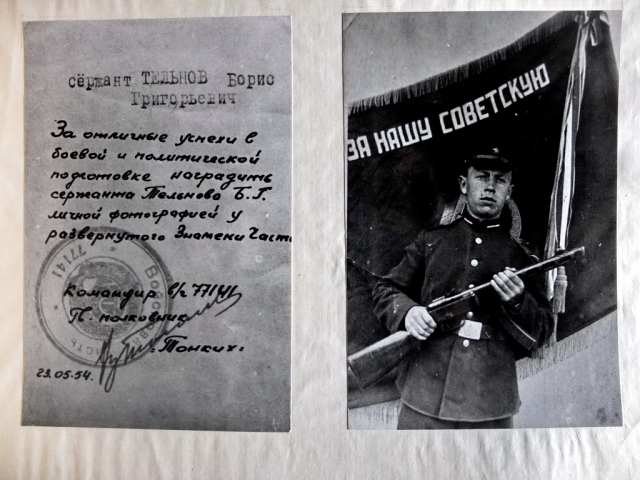 сержант ТЕЛЬНОВ Борис
Григорьевич
За отличные успехи в
боевой и политической
подготовке наградить
сержанта Тельнова Б.Г.
личной фотографией у
развернутого Знамени Части
Командир в/ч 77141
П. полковник
"Тонких"
29.05.54.
77141
Войсковая часть
ЗА НАШУ СОВЕТСКУЮ